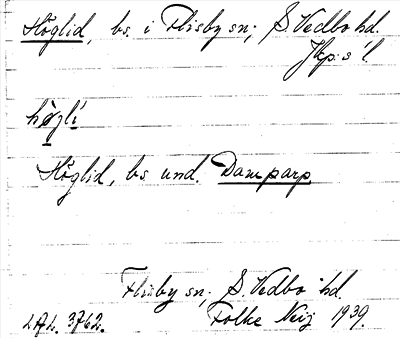 Höglid, bs. i Flisby sn; S. Vedbo hd.
Jkp:s l.
högli
Höglid, bs und. Damparp
Flisby sn; S. Vedbo hd.
LAL. 3762. Folke Neij 1939.